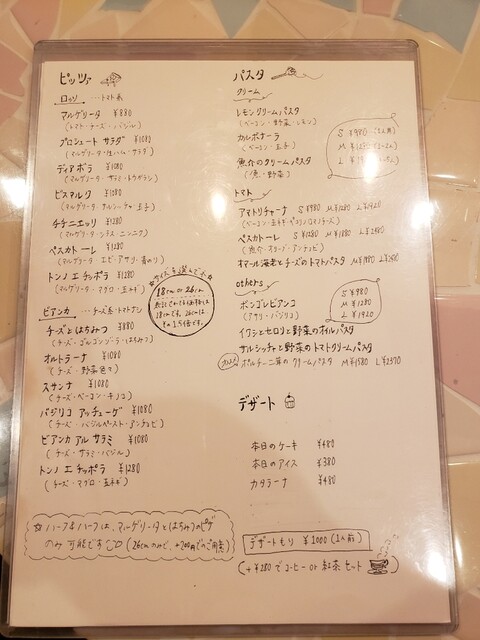 ピッツァ
ロッソ …トマト系
マルゲリータ ¥880
(トマト・チーズ・バジル)
プロシュート サラダ ¥1080
(マルゲリータ・生ハム・サラダ)
ディアボラ ¥1080
(マルゲリータ・サラミ・トウガラシ)
ビスマルク ¥1080
(マルゲリータ・サルシッチャ・玉子)
チチニエッリ ¥1280
(マルゲリータ・シラス・ニンニク)
ペスカトーレ ¥1280
(マルゲリータ・エビ・アサリ・青のり)
トンノ エ チッポラ ¥1280
(マルゲリータ・マグロ・玉ネギ)
サイズを選んで下さい
18cm or 26cm
18cmです。26cmは
その1.5倍です。
ビアンカ …チーズ系・トマトナシ
チーズとはちみつ ¥880
(チーズ・ゴルゴンゾーラ・はちみつ)
オルトラーナ ¥1080
(チーズ・野菜色々)
スサンナ ¥1080
(チーズ・ベーコン・キノコ)
バジリコ アッチューゲ ¥1080
(チーズ・バジルペースト・アンチョビ)
ビアンカ アル サラミ ¥1080
(チーズ・サラミ・バジル)
トンノ エ チッポラ ¥1280
(チーズ・マグロ・玉ネギ)
☆ ハーフ&ハーフは、マルゲリータとはちみつのピザ
のみ 可能です (26cmのみで、+200円でのご用意)
パスタ
クリーム
レモンクリームパスタ
(ベーコン・野菜・レモン)
カルボナーラ
(ベーコン・玉子)
魚介のクリームパスタ
(魚・野菜)
S ¥980
トマト
アマトリチャーナ S ¥980 M ¥1280 L ¥1920
(ベーコン・玉ネギ・ペコリーノロマノチーズ)
ペスカトーレ
(魚介・オリーブ・アンチョビ)
オマール海老とチーズのトマトパスタ
others
ボンゴレビアンコ
(アサリ・バジリコ)
S ¥980
M ¥1280
L ¥1920
イワシとセロリと野菜のオイルパスタ
サルシッチャと野菜のトマトクリームパスタ
ポルチーニ茸のクリームパスタ M ¥1580 L ¥2370
デザート
本日のケーキ ¥480
本日のアイス ¥380
カタラーナ ¥480
デザートもり ¥1000 (1人前)
(+¥280でコーヒー or 紅茶セット)